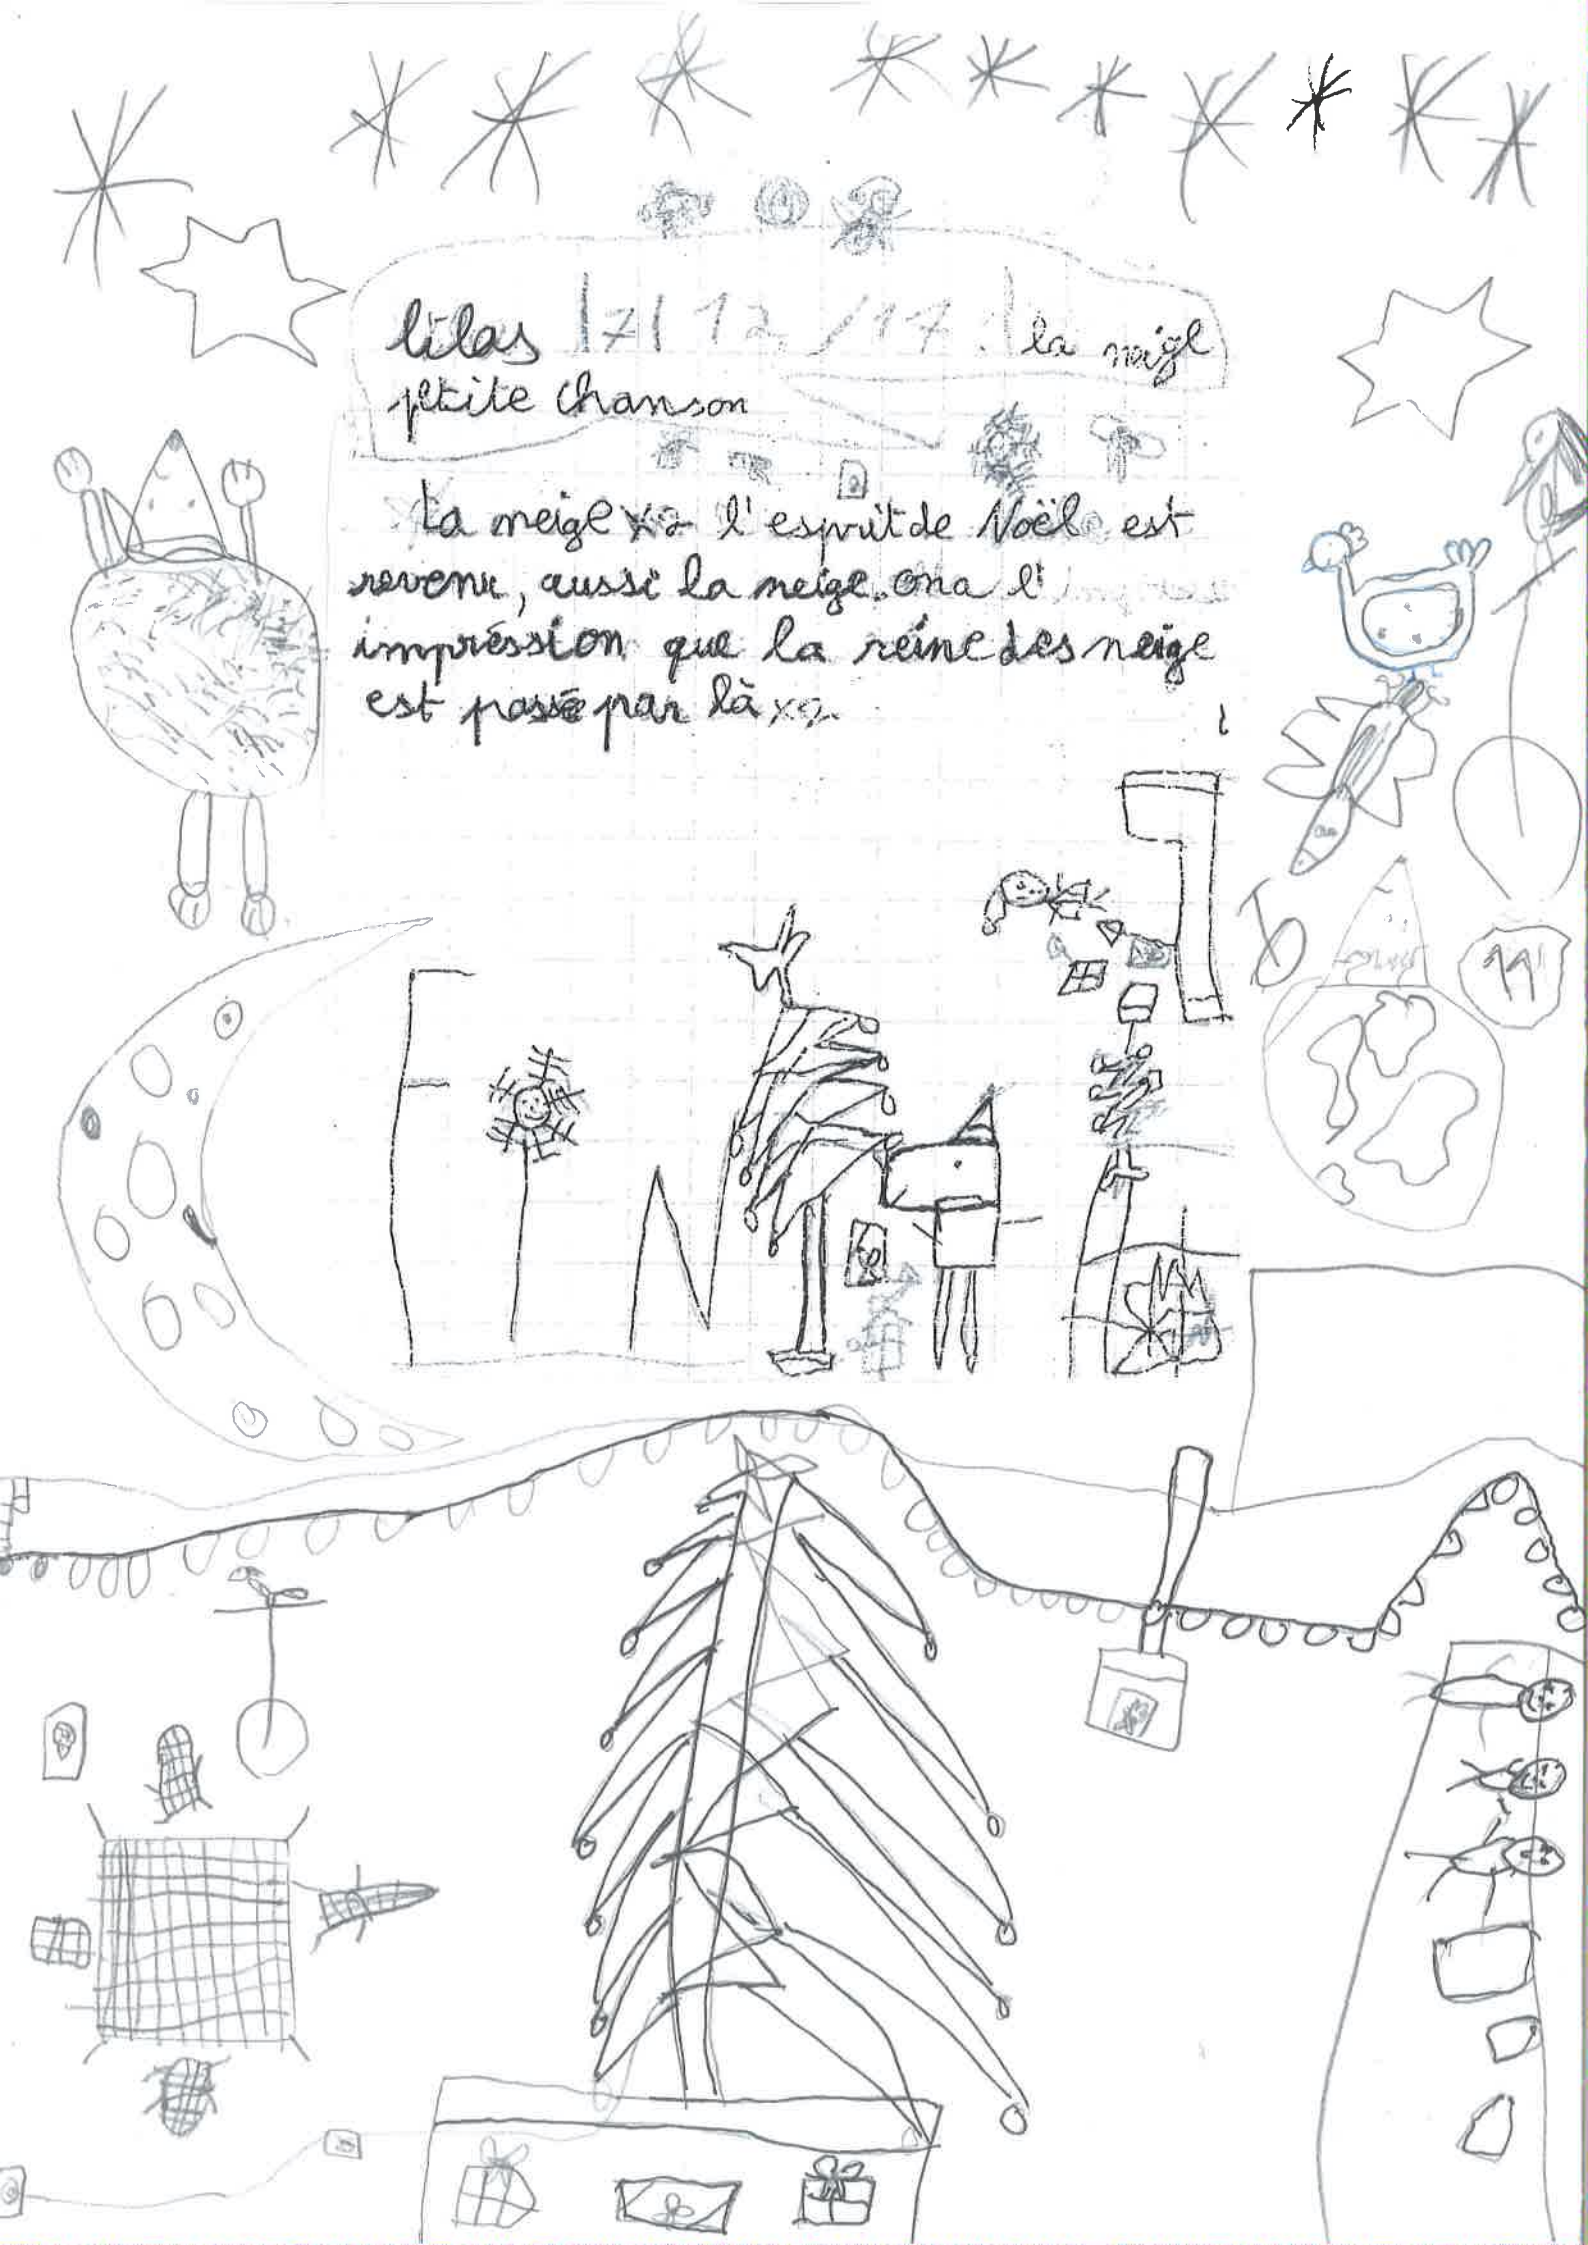 lilas 17/12/17 la neige
ptite chanson
La neige x2 l'esprit de Noël est
revenu, aussi la neige. on a l'
impréssion que la reine des neige
est passé par là x2.
FIN
11